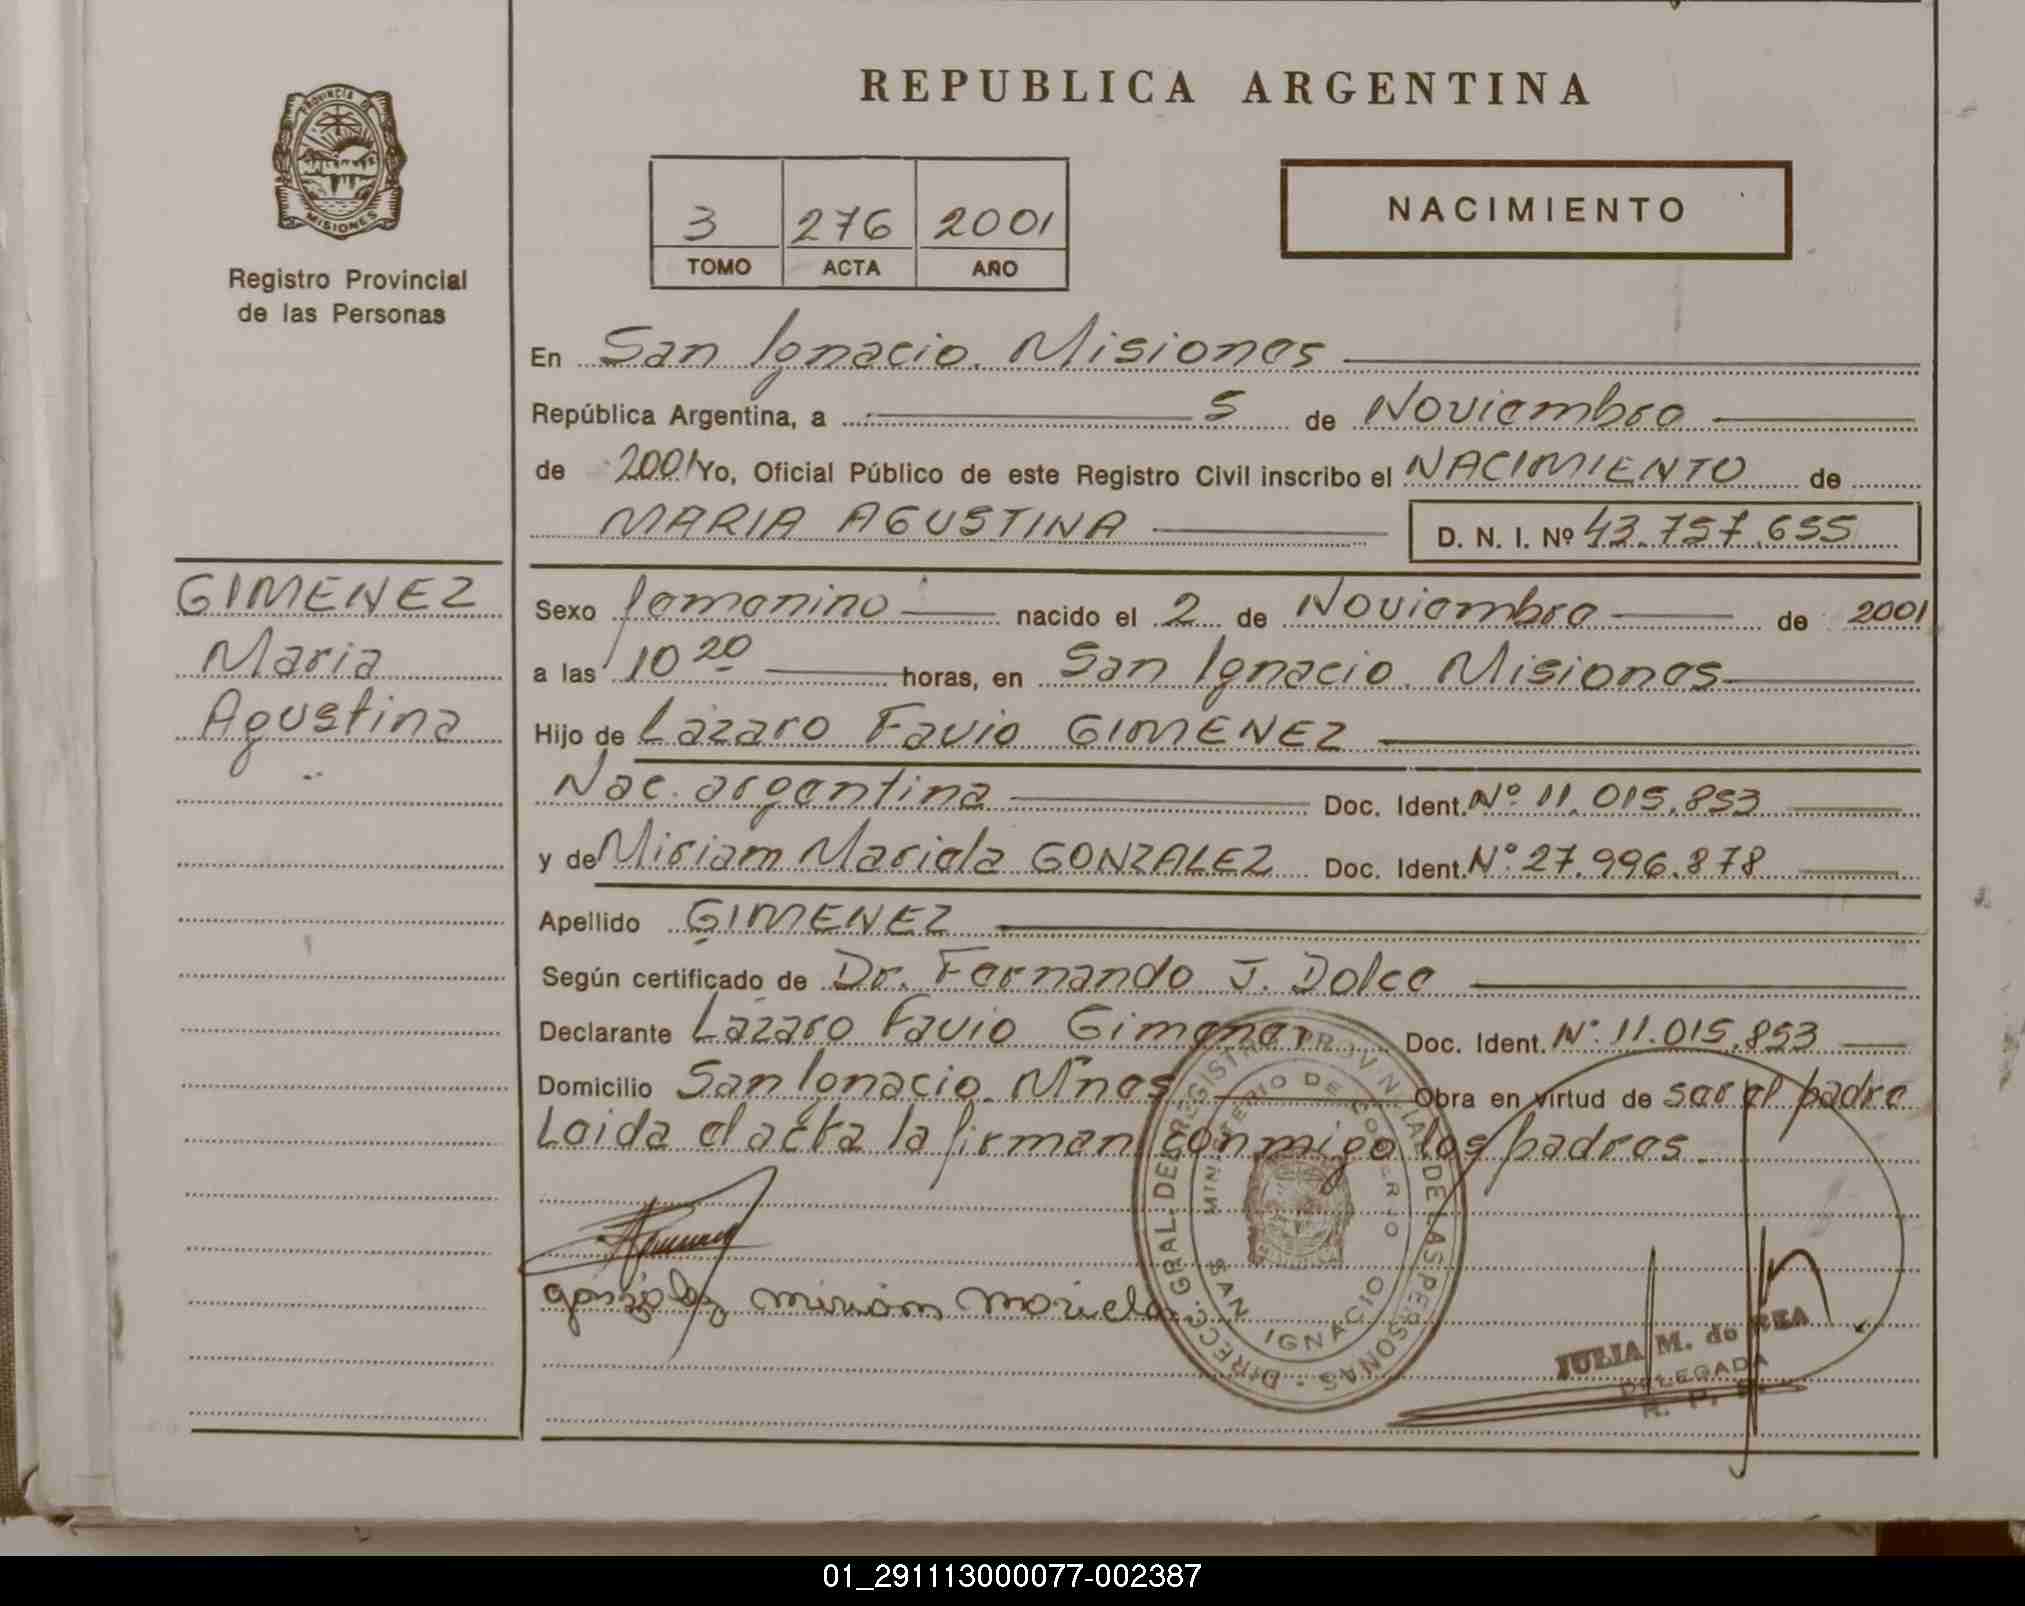 PROVINCIA DE
MISIONES
Registro Provincial
de las Personas
REPUBLICA ARGENTINA
3 276 2001
TOMO ACTA AÑO
NACIMIENTO
En San Ignacio. Misiones
República Argentina, a 5 de Noviembre
de 2001 Yo, Oficial Público de este Registro Civil inscribo el NACIMIENTO de
MARIA AGUSTINA D. N. I. Nº 43.757.655
GIMENEZ
Maria
Agustina
Sexo femenino nacido el 2 de Noviembre de 2001
a las 10 20 horas, en San Ignacio. Misiones
Hijo de Lázaro Favio GIMENEZ
Nac. argentina Doc. Ident. Nº 11.015.853
y de Miriam Mariela GONZALEZ Doc. Ident. Nº 27.996.878
Apellido GIMENEZ
Según certificado de Dr. Fernando J. Dolce
Declarante Lázaro Favio Gimenez Doc. Ident. Nº 11.015.853
Domicilio San Ignacio. Mnes Obra en virtud de ser el padre
Leida el acta la firman conmigo los padres.
gonzalez miriam mariela
DIRECC. GRAL. DEL REGISTRO PROVINCIAL DE LAS PERSONAS
MINISTERIO DE GOBIERNO
SAN IGNACIO
JULIA M. de REA
DELEGADA
R. P. P.
01_291113000077-002387